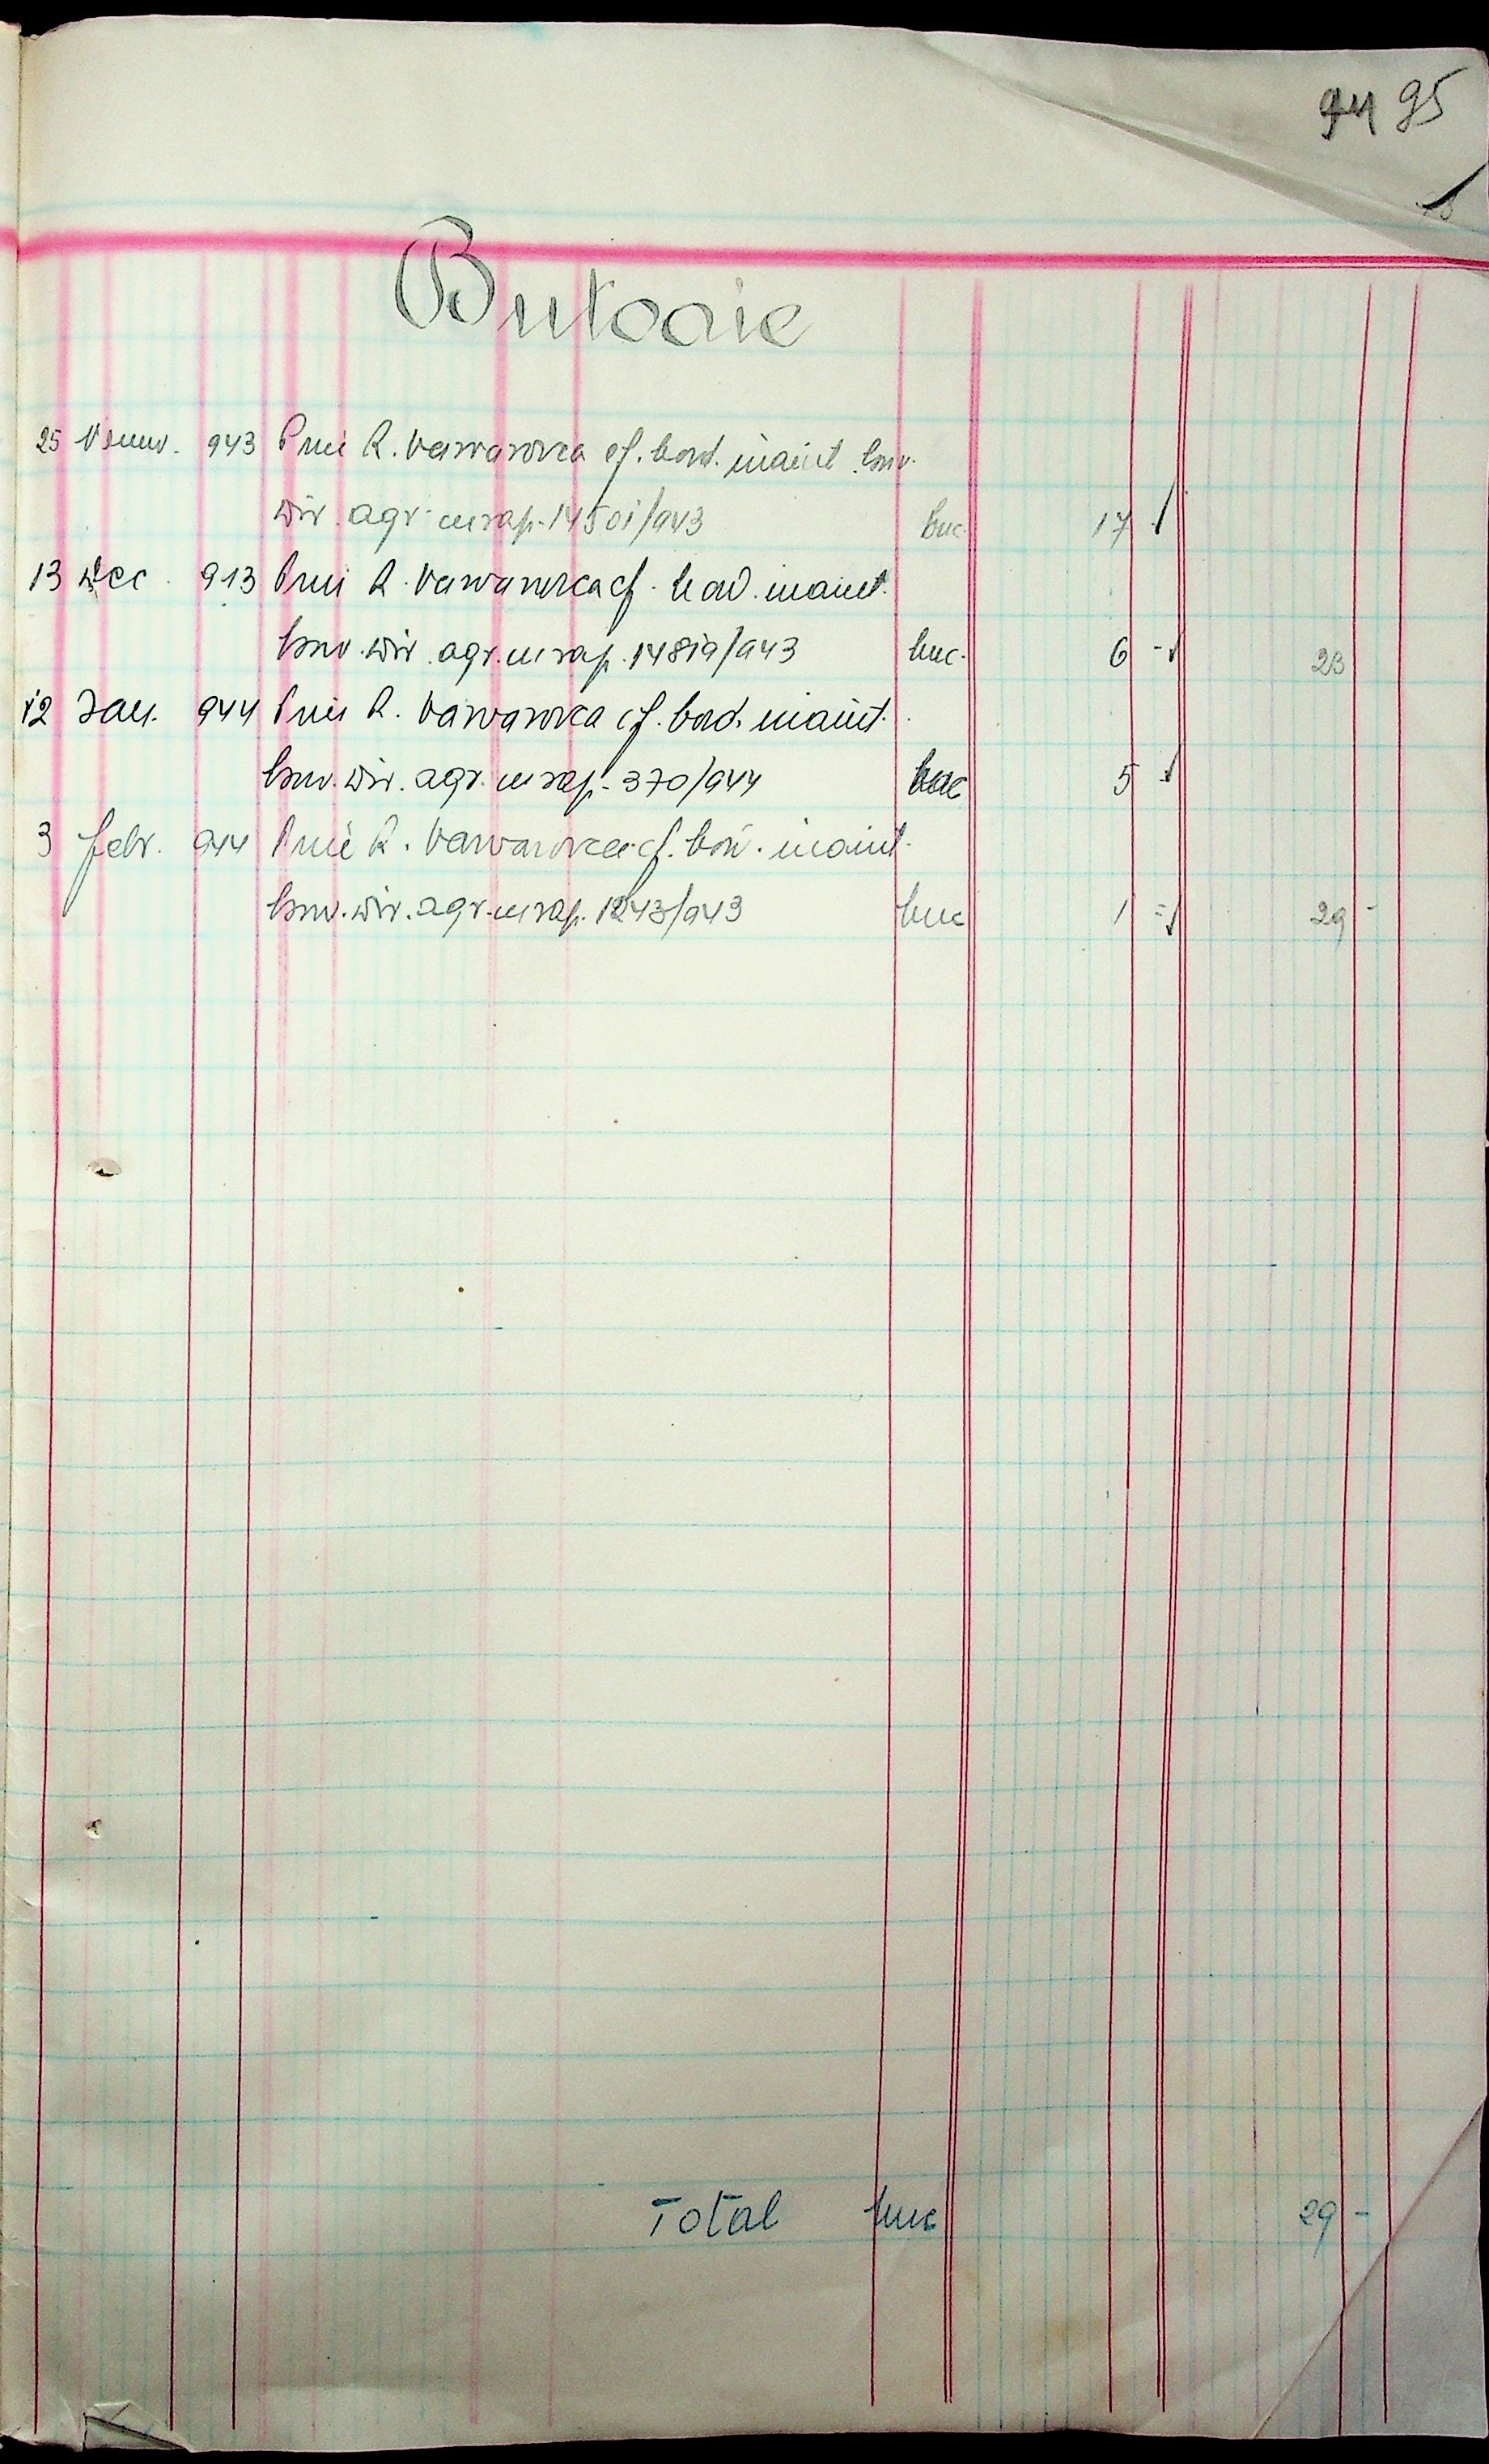 94 95
Butoaie
25 Noemv. 943 Prin R. Varvarovca cf. bord. inaint. conv.
Dir. agr. cu rap. 14501/943 buc. 17
13 Dec. 943 Prin R. Varvarovca cf. bord. inaint.
conv. Dir. agr. cu rap. 14819/943 buc. 6 - 23
12 Jan. 944 Prin R. Varvarovca cf. bord. inaint.
conv. Dir. agr. cu rap. 370/944 buc 5 -
3 febr. 944 Prin R. Varvarovca cf. bord. inaint.
conv. Dir. agr. cu rap. 1243/943 buc 1 - 29 -
Total buc 29 -